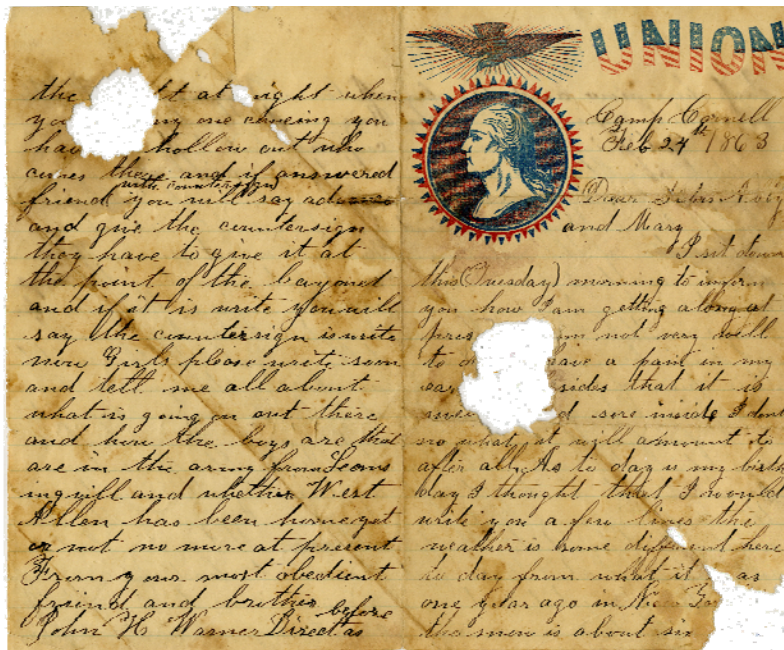 the at night when
you any one comeing you
have hollow out who
comes there and if answered
with countersign
friend you will say advance
and give the countersign
they have to give it at
the point of the bayonet
and if it is write you will
say the countersign is write
now Girls please write soon
and tell me all about
what is going on out there
and how the boys are that
are in the army from Leoms
ingvill and whether West
Allen has been home yet
or not no more at present
From your most obedient
friend and brother before
John H Warner Direct as
UNION
Camp Cornell
Feb 24th 1863
Dear Sisters
and Mary
I sit down
this (Tuesday) morning to inform
you how I am getting along at
am not very well
to have a pain in my
sides that it is
sore inside I dont
no what it will amount to
after all. As to day is my birth
day I thought that I would
write you a few lines the
weather is some different here
to day from what it as
one year ago in New
the snow is about six